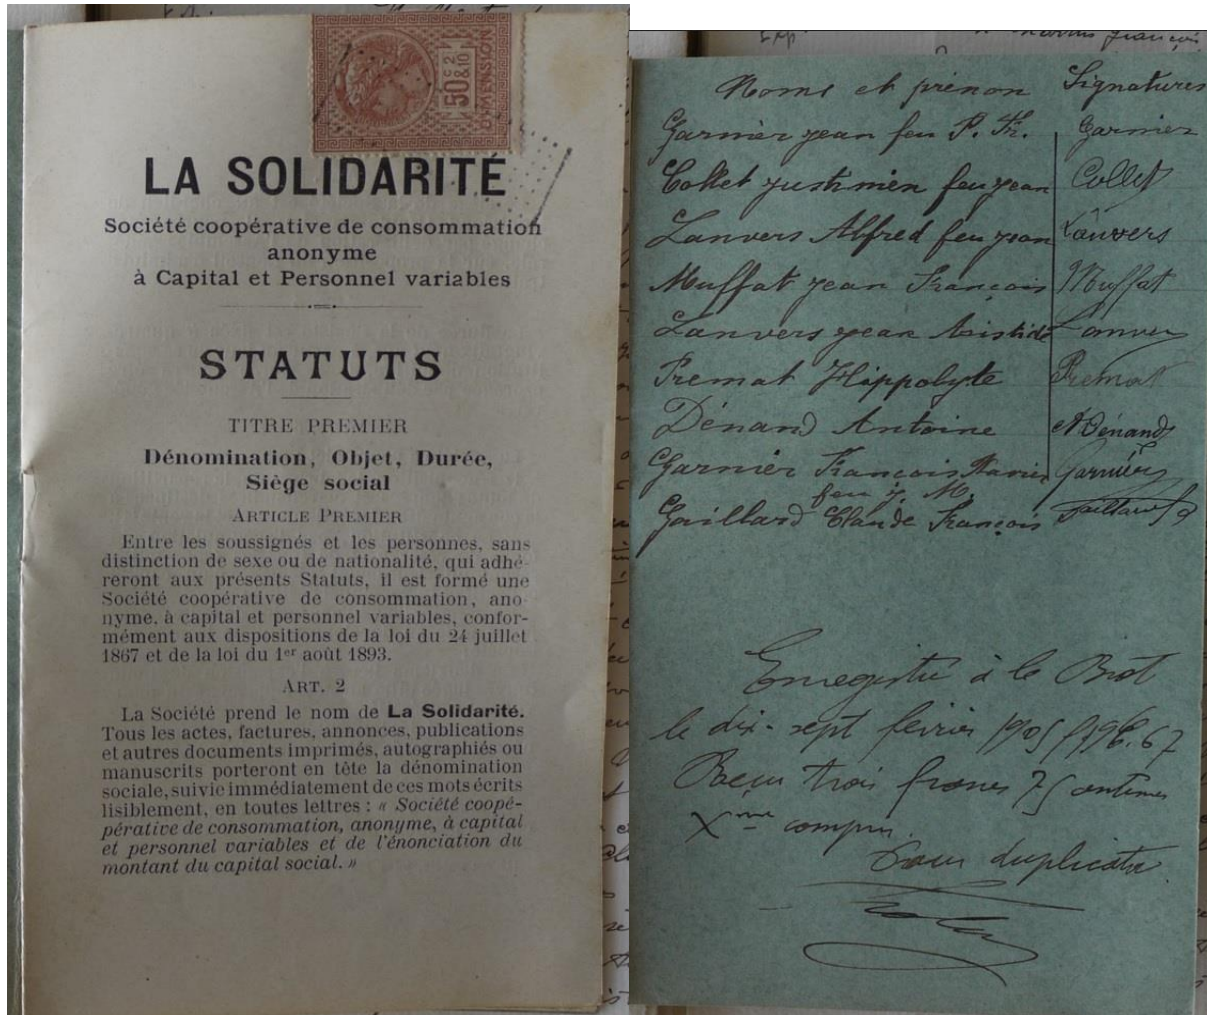 50 c 2
& 10
DIMENSION
LA SOLIDARITÉ
Société coopérative de consommation
anonyme
à Capital et Personnel variables
STATUTS
TITRE PREMIER
Dénomination, Objet, Durée,
Siège social
ARTICLE PREMIER
Entre les soussignés et les personnes, sans
distinction de sexe ou de nationalité, qui adhé-
reront aux présents Statuts, il est formé une
Société coopérative de consommation, ano-
nyme, à capital et personnel variables, confor-
mément aux dispositions de la loi du 24 juillet
1867 et de la loi du 1er août 1893.
ART. 2
La Société prend le nom de La Solidarité.
Tous les actes, factures, annonces, publications
et autres documents imprimés, autographiés ou
manuscrits porteront en tête la dénomination
sociale, suivie immédiatement de ces mots écrits
lisiblement, en toutes lettres : « Société coopé-
pérative de consommation, anonyme, à capital
et personnel variables et de l'énonciation du
montant du capital social. »
Noms et prénon Signatures
Garnier jean feu P. Fr. Garnier
Collet justinien feu jean Collet
Lanvers Alfred feu jean Lanvers
Muffat jean François Muffat
Lanvers jean Aristide Lanvers
Premat Hippolyte Premat
Dénand Antoine A Dénand
Garnier François Marie Garnier
feu J. M.
Gaillard Claude François Gaillard
Enregistré à le Biot
le dix-sept février 1905 f 96. 67
Reçu trois francs 75 centimes
Xmes compris.
Pour duplicata